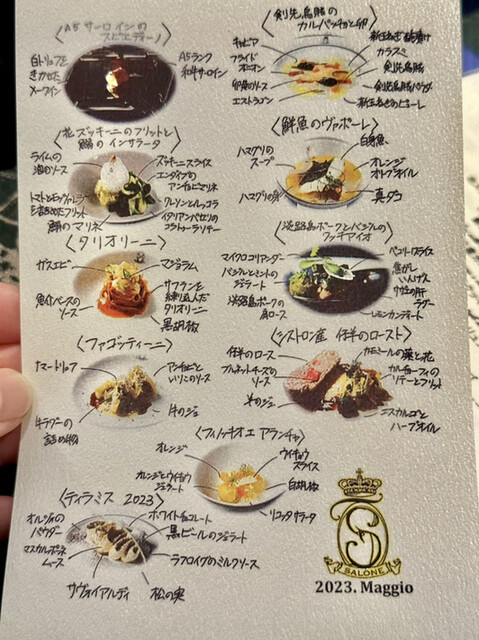 〈A5サーロインのスピエディーノ〉
白トリュフを
きかせた
メークイン
A5ランク
和牛サーロイン
〈剣先烏賊のカルパッチョと卵〉
キャビア
フライド
オニオン
卵黄のソース
エストラゴン
カラスミ
剣先烏賊
剣先烏賊パウダー
新玉ねぎのピューレ
〈花ズッキーニのフリットと
鯵のインサラータ〉
ライムの
泡のソース
トマトとモッツァレラ
を詰めたフリット
鯵のマリネ
ズッキーニスライス
エンダイブの
アンチョビマリネ
クレソンとルッコラ
イタリアンパセリの
コラトゥーラソテー
〈鮮魚のヴァポーレ〉
ハマグリの
スープ
ハマグリの身
白身魚
オレンジ
オリーブオイル
真ダコ
〈タリオリーニ〉
ガスエビ
魚介ベースの
ソース
マジョラム
サフランを
練り込んだ
タリオリーニ
黒胡椒
〈淡路島ポークとバジルの
マイクロコリアンダー
バジルとミントの
ジェラート
淡路島ポークの
肩ロース
ペコリーノスライス
焦がし
いんげん
ラグー
レモンカンディート
〈ファゴッティーニ〉
サマートリュフ
牛ラグーの
詰め物
アンチョビと
いりこのソース
牛のジュ
〈シストロン産 仔羊のロースト〉
仔羊のロース
ブルネットチーズの
ソース
羊のジュ
カモミールの葉と花
カルチョーフィの
リピテーとフリット
エスカルゴと
ハーブオイル
〈フィノッキオ エ アランチャ〉
オレンジ
オレンジとウイキョウ
ジェラート
ウイキョウ
スライス
白胡椒
リコッタサラータ
〈ティラミス 2023〉
オルヅォの
パウダー
マスカルポーネ
ムース
サヴォイアルディ
ホワイトチョコレート
黒ビールのジェラート
ラフロイグのミルクソース
松の実
SALONE
2023. Maggio